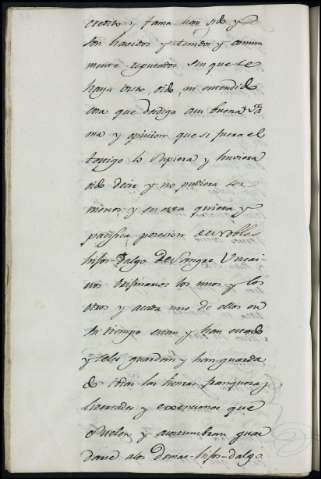 credito y fama han sido y
son havidos y tenidos y comun
mente reputados, sin que se
haya visto, oido, ni entendido
cosa que desdiga a su buena fa
ma y opinion que si fuera el
testigo lo supiera y huviera
oido decir y no pudiera ser
menos y en esta quieta y
pacifica posesion de nobles
hijos-Dalgo de Sangre
los unos y los
otros y cada uno de ellos en
su tiempo estan y han estado
y seles guardan y han guarda
do todas las honras franquezas,
livertades y exenciones que
suelen y acostumbran guar
darse alos Demas-hijos-dalgo